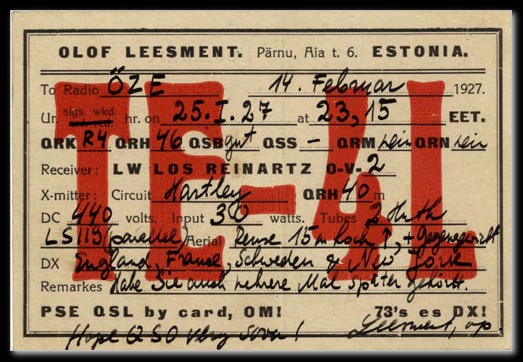 OLOF LEESMENT. Pärnu, Aia t. 6. ESTONIA.
To Radio ÖZE 14. Februar 1927.
Ur. sigs. wkd. hr. on 25.I.27 at 23,15 EET.
QRK R4 QRH 46 QSB gut QSS – QRM kein QRN kein
Receiver: LW LOS REINARTZ 0-V-2
X-mitter: Circuit Hartley QRH 40 m
DC 440 volts. Input 30 watts. Tubes 2 Huth
LS 119 (parallel) Aerial Reuse 15m hoch, + Gegengewicht
DX England, France, Schweden & New York
Remarkes Habe Sie auch mehrere Mal später gehört.
PSE QSL by card, OM! 73's es DX!
Hope QSO very soon! Leesment, op.
TE-4L